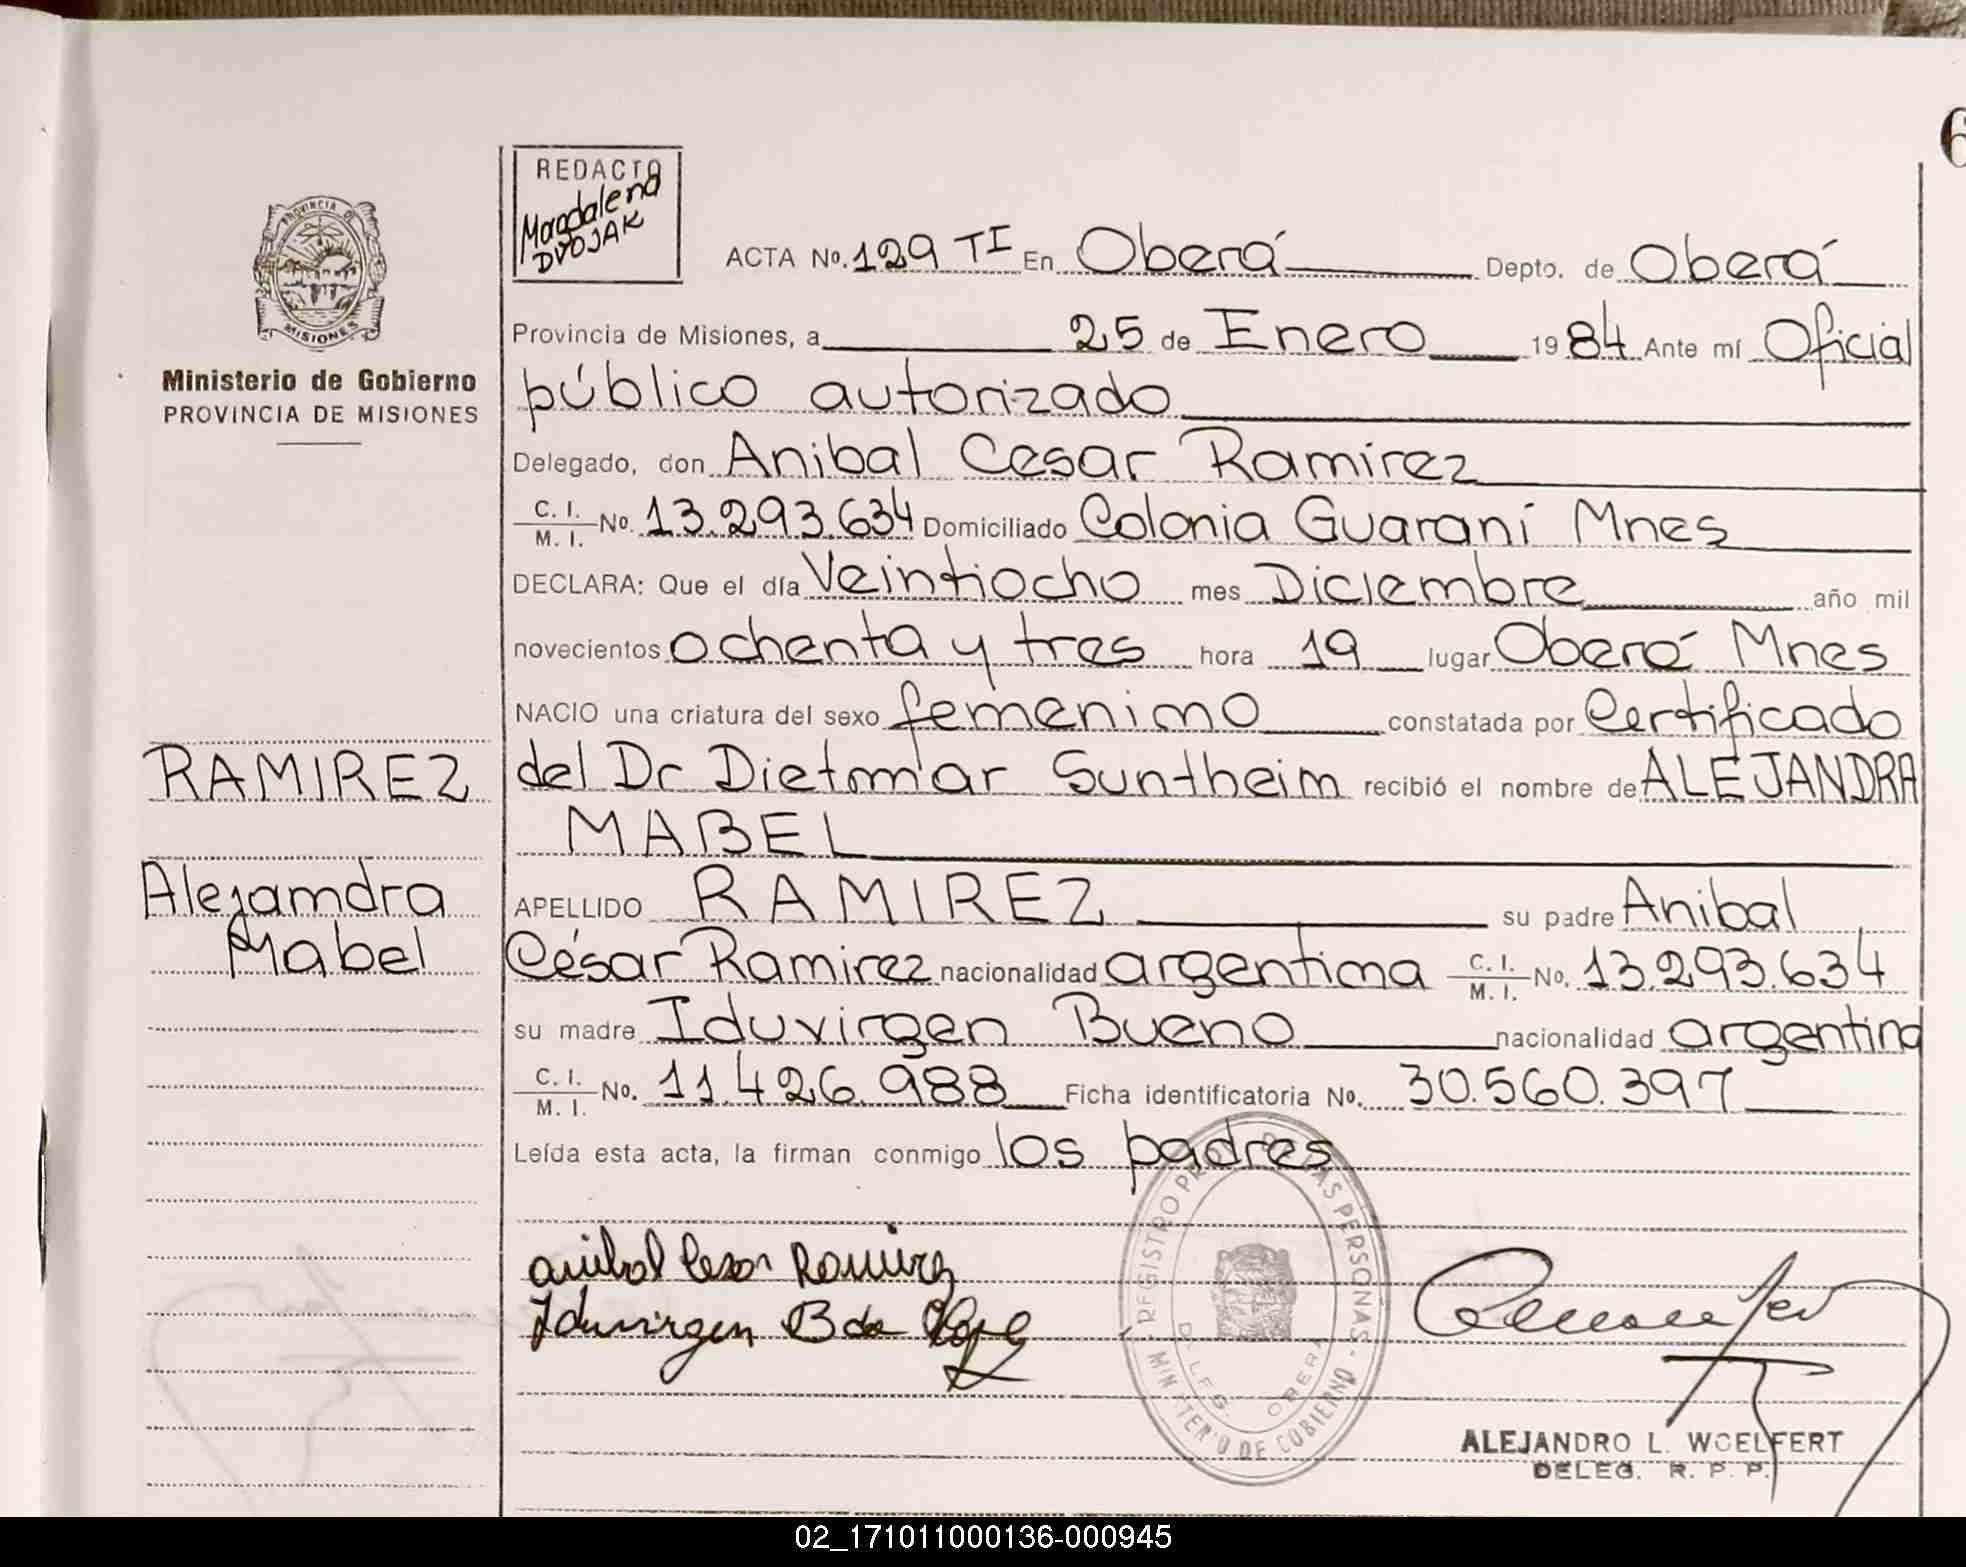 6
REDACTO
Magdalena
DVOJAK
ACTA No. 129 TI En Oberá Depto. de Oberá
PROVINCIA DE
MISIONES
Provincia de Misiones, a 25 de Enero 1984 Ante mí Oficial
Ministerio de Gobierno
PROVINCIA DE MISIONES
público autorizado
Delegado, don Anibal Cesar Ramirez
C. I. / M. I. No. 13.293.634 Domiciliado Colonia Guaraní Mnes
DECLARA: Que el día Veintiocho mes Diciembre año mil
novecientos ochenta y tres hora 19 lugar Oberá Mnes
NACIO una criatura del sexo femenino constatada por Certificado
RAMIREZ
del Dr Dietmar Suntheim recibió el nombre de ALEJANDRA
MABEL
Alejandra
Mabel
APELLIDO RAMIREZ su padre Anibal
César Ramirez nacionalidad argentina C. I. / M. I. No. 13.293.634
su madre Iduvirgen Bueno nacionalidad argentina
C. I. / M. I. No. 11.426.988 Ficha identificatoria No. 30.560.397
Leída esta acta, la firman conmigo los padres
anibal Cesar Ramirez
Iduvirgen B de
REGISTRO PROV. DE LAS PERSONAS
MINISTERIO DE GOBIERNO
DELEG. OBERA
ALEJANDRO L. WOELFERT
DELEG. R. P. P.
02_171011000136-000945